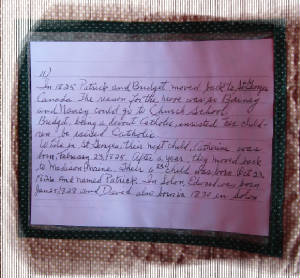 11)
In 1825 Patrick and Bridget moved back to St. George
Canada. The reason for the move was so Barney
and Nancy could go to Church School.
Bridget, being a devout Catholic insisted the child-
ren be raised Catholic.
While in St George their next child, Catherine was
born, February 23, 1825. After a year, they moved back
to Madison, Maine. Their 6th child was born Oct 23,
1826 and named Patrick. In Solon, Edward was born
Jan 25, 1828 and David also born in 1830 in Solon